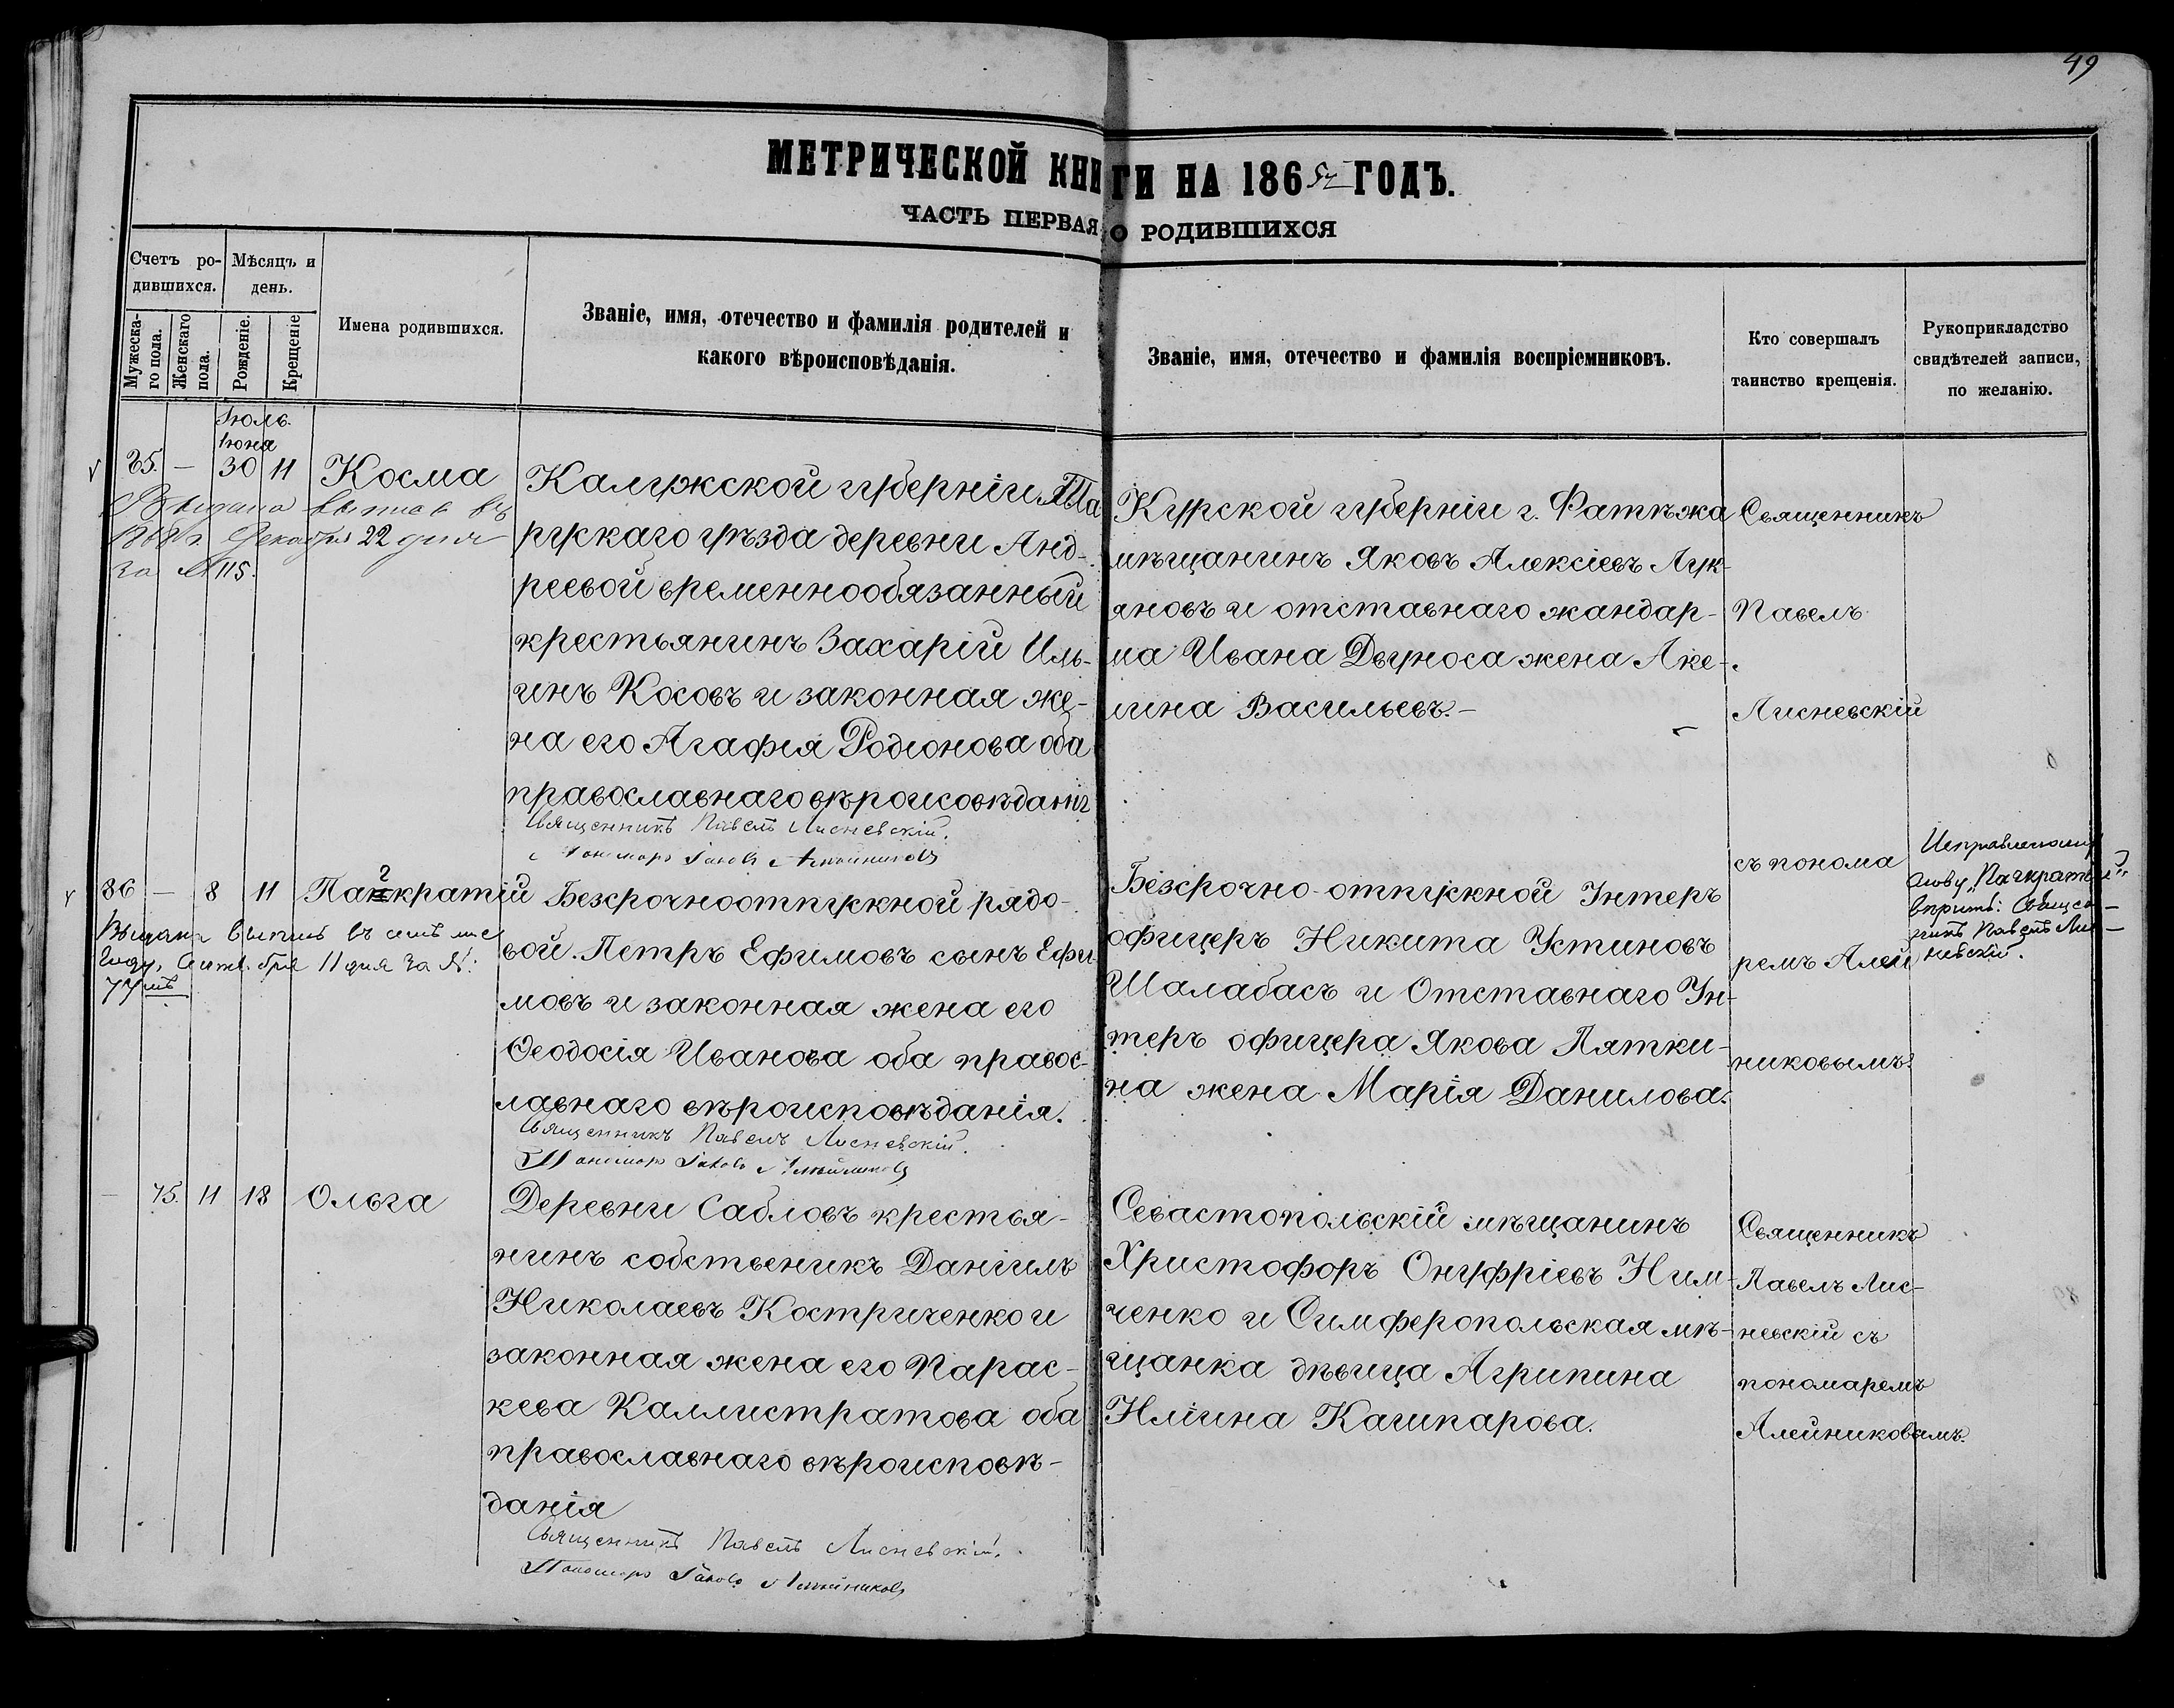 49
МЕТРИЧЕСКОЙ КНИГИ НА 1865 ГОДЪ.
ЧАСТЬ ПЕРВАЯ О РОДИВШИХСЯ
Счетъ ро-
дившихся.
Мѣсяцъ и
день.
Мужеска-
го пола.
Женскаго
пола.
Рожденіе.
Крещеніе
Имена родившихся.
Званіе, имя, отечество и фамилія родителей и
какого вѣроисповѣданія.
Званіе, имя, отечество и фамилія воспріемниковъ.
Кто совершалъ
таинство крещенія.
Рукоприкладство
свидѣтелей записи,
по желанію.
Іюль.
Іюня
85. — 30 11 Косма
Выдана выпись въ
Декабря 22 дня
за № 115.
Калужской губерніи Та
рускаго уѣзда деревни Анд-
реевой временнообязанный
крестьянинъ Захарій Иль-
инъ Косовъ и законная же-
на его Агафія Родіонова оба
православнаго вѣроисовѣданіг
Священникъ Павелъ Лисневскій.
Пономарь Іаковъ Алейниковъ
Курской губерніи г. Фатѣжа
мѣщанинъ Яковъ Алексіевъ Лук-
яновъ и отставнаго жандар-
ма Ивана Двуноса жена Аке-
лина Васильевъ.—
Священникъ
Павелъ
Лисневскій
86 — 8 11 Пангкратій
Выдана выпись въ семъ же
году, Октября 11 дня за №:
77мъ
Безсрочноотпускной рядо-
вой. Петръ Ефимовъ сынъ Ефи-
мовъ и законная жена его
Ѳеодосія Иванова оба правос-
лавнаго вѣроисповѣданія.
Священникъ Павелъ Лисневскій.
Пономарь Іаковъ Алейниковъ
Безсрочно-отпускной Унтеръ
офицеръ Никита Устиновъ
Шалабасъ и Отставнаго Ун-
теръ офицера Якова Пятки-
на жена Марія Данилова.
съ понома
ремъ Алей
никовымъ.
слову „Пагкратій"
вѣрить: Священ-
никъ Павелъ Лис-
невскій.
— 75. 11 18 Ольга
Деревни Сабловъ крестья-
нинъ собственикъ Даніилъ
Николаевъ Костриченко и
законная жена его Парас-
кева Каллистратова оба
православнаго вѣроисповѣ-
данія
Священникъ Павелъ Лисневскій.
Пономарь Іаковъ Алейниковъ
Севастопольскій мѣщанинъ
Христофоръ Онуфріевъ Ним-
ченко и Симферопольская мѣ-
щанка дѣвица Агрипина
Иліина Кашпарова.
Священникъ
Павелъ Лис-
невскій съ
пономаремъ
Алейниковымъ.